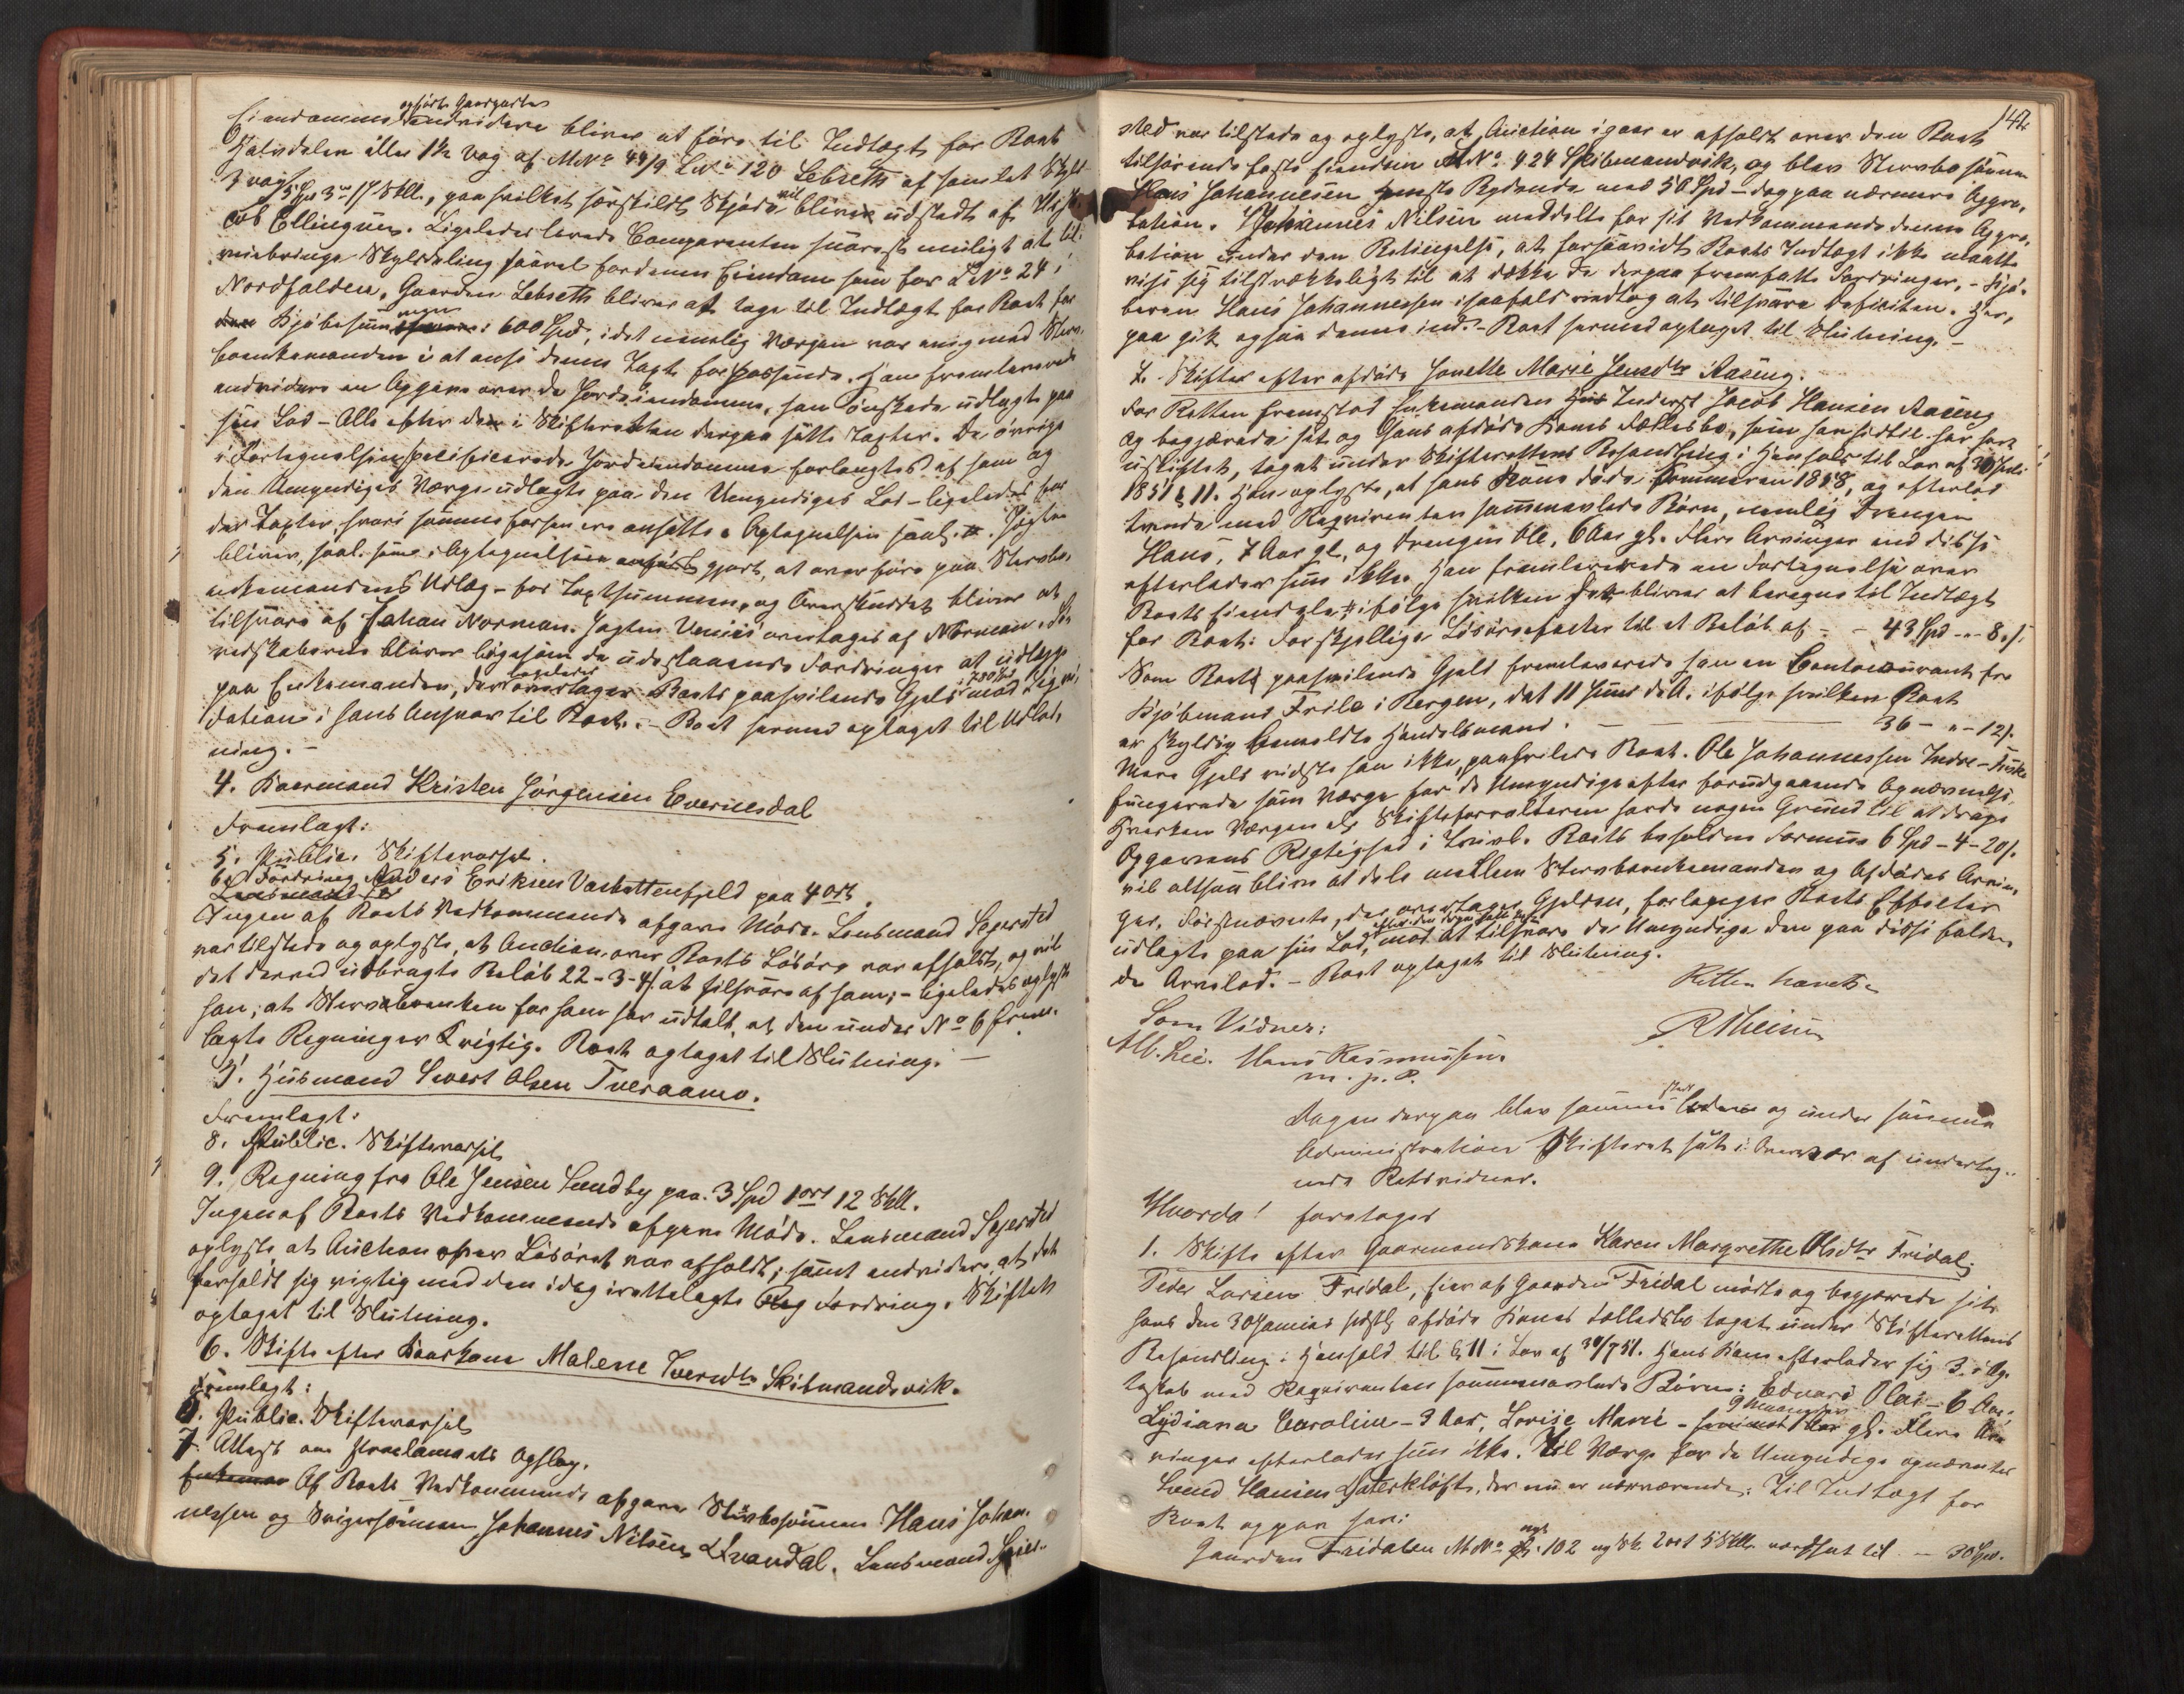 opførte Gaarparter
Eiendommes endvidere bliver at føre til Indtægt for Boet
Hatvdalen eller 1½ Vog af M No 44/9 L No 120 Lebseth af samlet Skyld
3 vog
5 Spd 3 ort 17 Skl., paa hvilket særskildt Skjøde vil bliver udstedt af
Ellingsen. Ligeledes lovede Comparenten snarest muligt at til-
veiebringe Skyldeling saavel for denne Eiendom som for L No 24 i
Nordfolden. Gaarden Lebseth bliver at tage til Indtægt for Boet for
den Kjøbesum 600 Spd, idet nemlig Værgen var enig med Sterv-
boenkemanden i at anse denne Taxt for passende. Han fremleverede
endvidere en Opgave over de Jordeiendomme, han ønskede udlagte paa
sin Lod – Alle efter den i Skifteretten derpaa satte Taxter. De øvrige
i Fortegnelsen specificerede Jordeiendomme forlangtes af ham og
den Umyndiges Værge udlagte paa den Umyndiges Lod – ligeledes for
der Taxter, hvori samme forhen ere ansatte. Optegnelsen
bliver, saal. som i Optegnelsen anført gjort, at overføre paa Stervbo-
enkemandens Udlæg – for Taxtsummen, og Overskuddet bliver at
tilsvare af Johan Norman. Jagten Veniis overtages af Norman.
redskaberne bliver ligesom de udestaaende Fordringer at udlægge
paa Enkemanden, der ligeledes overtager Boets paahvilende Gjeld mod Liqvi-
dation i hans Ansvar til Boet. – Boet hermed optaget til Udlod-
ning. –
4. Baarmand Kristen Jørgensen Evernesdal
Fremlagt:
5. Public. Skiftevarsel.
6. Fordring Anders Eriksen Vasbottenfjeld paa 4 ort.
Lensmand
Ingen af Boets Vedkommende afgave Møde. Lensmand Sejersted
var tilstede og oplyste, at Auction over Boets Løsøre var afholdt, og vil
det derved udbragte Beløb 22 – 3 – 4 s at tilsvare af ham; – ligeledes oplyste
han, at Stervboenken for ham har udtalt, at den under No 6 frem-
lagte Regninger rigtig. Boet optaget til Slutning. –
5. Husmand Sivert Olsen Tveraamo.
Fremlagt:
8. Public. Skiftevarsel
9. Regning fra Ole Jensen Sundby paa 3 Spd 1 ort 12 Skll.
Ingen af Boets Vedkommende afgave Møde. Lensmand Sejersted
oplyste at Auction over Løsøret var afholdt; samt endvidere, at det
forholdt sig rigtig med den idag irettelagte Fordring. Skiftet
optaget til Slutning.
6. Skifte efter Baarkone Malene Sversdtr Skibmandsvik.
Fremlagt:
4. Public. Skiftevarsel
7. Attest om Proclamaets Opslag.
Enkeman Af Boets Vedkommende afgave Stervbosønnen Hans Johan-
nessen og Svigersønnen Johannes Nilsen Kvandal. Lensmand Sejer-
142
sted var tilstede og oplyste, at Auction igaar er afholdt over den Boet
tilhørende faste Eiendom M No 424 Skibmandvik, og blev Stervbosønnen
Hans Johannesen høieste Bydende med 50 Spd – dog paa nærmere Appro-
bation. Johannes Nilsen meddelte for sit Vedkommende denne Appro-
bation under den Betingelse, at forsaavidt Boets Indtægt ikke maatte
vise sig tilstrækkeligt til at dække de derpaa fremsatte Fordringer, – Kjø-
beren Hans Johannessen isaafald vedtog at tilsvare Deficiten. Her-
paa gik ogsaa denne ind. – Boet hermed optaget til Slutning. –
7. Skiftet efter afdøde Jonette Marie Jensdtr Aasing.
For Retten fremstod Enkemanden Inderst Jacob Hansen Aasing
og begjærede sit og hans afdøde Kones Fællesbo, som han hidtil har havt
uskiftet, taget under Skifterettens Behandling i Henhold til Lov af 30 Juli
1851 § 11. Han oplyste, at hans Kone døde Sommeren 1858, og efterlod
tvende med Reqvirenten sammenavlede Børn, nemlig Drengen
Hans, 7 Aar gl., og Drengen Ole, 6 Aar gl. Flere Arvinger end disse
efterlader hun ikke. Han fremleverede en Fortegnelse over
Boets Eiendele, ifølge hvilken bliver at beregne til Indtægt
for Boet: forskjellige Løsøreeffecter til et Beløb af – – 43 Spd – „ – 8 s.
Som Boets paahvilende Gjeld fremleverede han en Contocourant fra
Kjøbmand Friele i Bergen, dat 11 Juni d. A. ifølge hvilken Boet
er skyldig bemeldte Handelsmand. – 36 – „ – 12 s.
Mere Gjeld vidste han ikke, paahvilede Boet. Ole Johannessen Indre-
fungerede som Værge for de Umyndige efter forudgaaende Opnævnelse
Hverken Værgen eller Skifteforvalteren havde nogen Grund til at drage
Opgavens Rigtighed i Tvivl. Boets beholdne Formue 6 Spd – 4 – 20 s.
vil altsaa blive at dele mellem Stervboenkemanden og Afdødes Arvin-
ger. Førstnævnte, der overtager Gjelden, forlanger Boets Effecter
udlagte paa sin Lod, mod at tilsvare de Umyndige den paa disse faldne
de Arvelod. – Boet optaget til Slutning.
Retten hævet.
Som Vidner:
Alb. Lie. Hans Rasmussen
m. p. P.
Dagen derpaa blev samme sted og under samme
Administration Skifteret sat i Overvær af underteg-
nede Retsvidner.
Hvorda! foretoges
1. Skifte efter Gaarmandskone Karen Margrethe Olsdtr Fridal;
Peder Larsen Fridal, Eier af Gaarden Fridal mødte og begjærede sit
hans den 30 Januar sidstl. afdøde Kones Fælledsbo taget under Skifterettens
Behandling i Henhold til § 11 i Lov af 30/7 51. Hans Kone efterlader sig 3 i Æg-
teskab med Reqvirenten sammenavlede Børn: Edvard Olai – 6 Aar,
Lydiana Caroline – 3 Aar, Lovise Marie – 9 Maaneder gl. Flere Ar-
vinger efterlader hun ikke. Til Værge for de Umyndige opnævntes
Svend Hansen, der nu er nærværende. Til Indtægt for
Boet opgav han:
Gaarden Fridalen M No 102 ny Sk. 2 ort 5 Skll. værdsat til – 30 Spd.